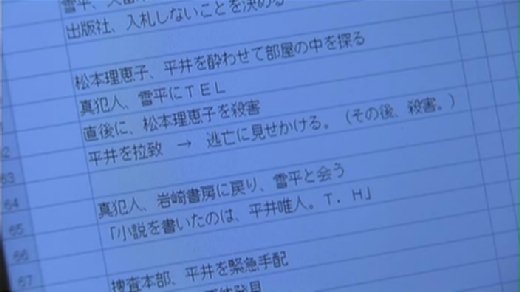 雪平、
出版社、入札しないことを決める
松本理恵子、平井を酔わせて部屋の中を探る
真犯人、雪平にＴＥＬ
直後に、松本理恵子を殺害
平井を拉致　→　逃亡に見せかける。（その後、殺害。）
63
64 真犯人、岩崎書房に戻り、雪平と会う
65 「小説を書いたのは、平井唯人。Ｔ．Ｈ」
66
67 捜査本部、平井を緊急手配